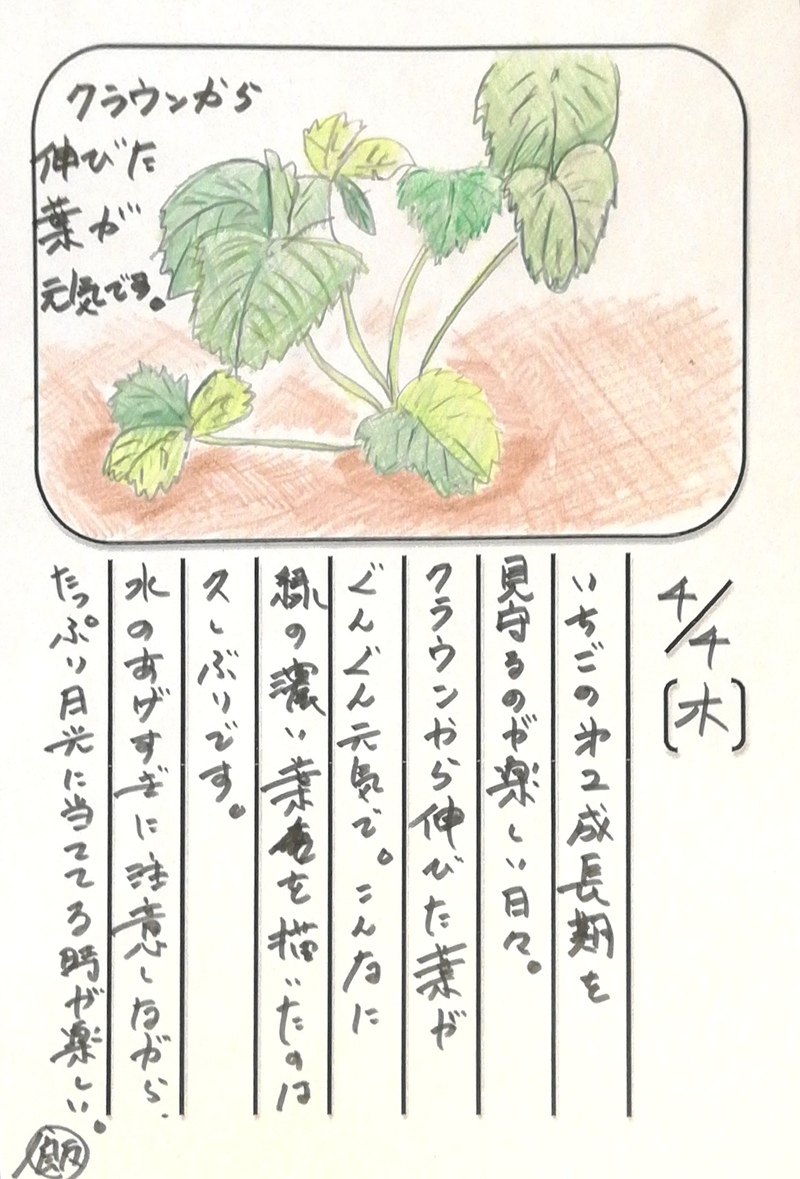 クラウンから
伸びた
葉が
元気です。
4/4(木)
いちごの第2成長期を
見守るのが楽しい日々。
クラウンから伸びた葉が
ぐんぐん元気で。こんなに
緑の濃い葉を描いたのは
久しぶりです。
水のあげすぎに注意しながら、
たっぷり日光に当ててる時が楽しい。
飯